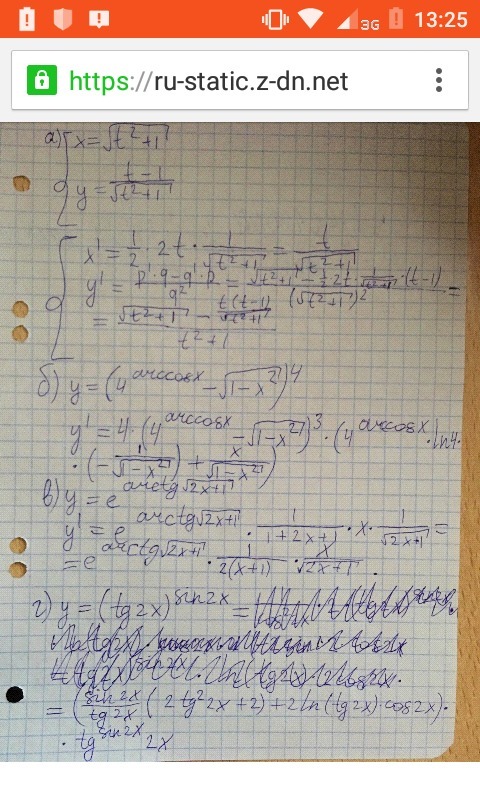 3G 13:25
https://ru-static.z-dn.net
а) x=√(t²+1)
y=(t-1)/√(t²+1)
x'=1/2·2t·1/√(t²+1)=t/√(t²+1)
y'=(p'·q-q'·p)/q²=(√(t²+1)-1/2·2t·1/√(t²+1)·(t-1))/(√(t²+1))²=
=(√(t²+1)-t(t-1)/√(t²+1))/(t²+1)
б) y=(4^arccosx-√(1-x²))⁴
y'=4·(4^arccosx-√(1-x²))³·(4^arccosx·ln4·
·(-1/√(1-x²))+x/√(1-x²))
в) y=e^arctg√(2x+1)
y'=e^arctg√(2x+1)·1/(1+2x+1)·x·1/√(2x+1)=
=e^arctg√(2x+1)·1/(2(x+1))·x/√(2x+1).
г) y=(tg2x)^sin2x=
=(sin2x/tg2x(2tg²2x+2)+2ln(tg2x)·cos2x)·
·tg^sin2x 2x